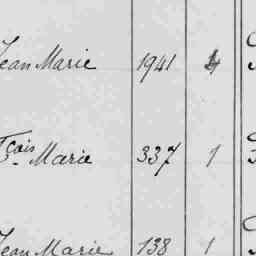 Jean Marie 1941 4
Fçois Marie 337 1
Jean Marie 138 1